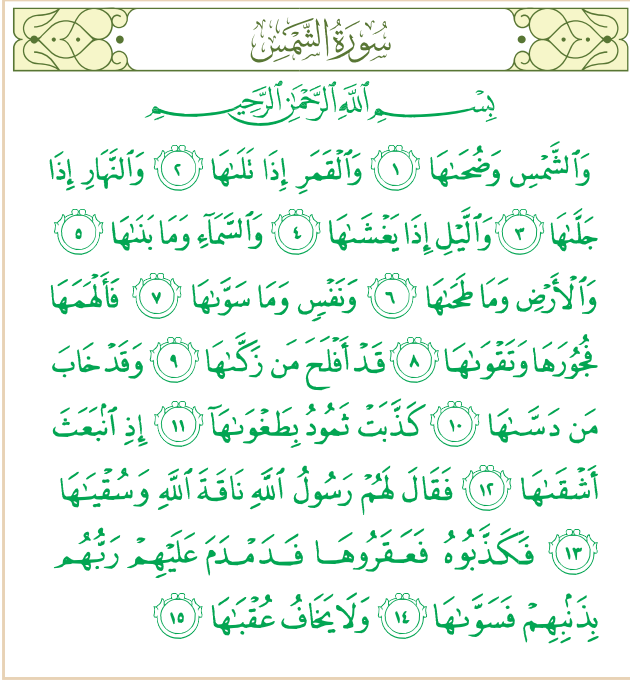 سُورَةُ الشَّمْسِ
بِسْمِ ٱللَّهِ ٱلرَّحْمَٰنِ ٱلرَّحِيمِ
وَٱلشَّمْسِ وَضُحَىٰهَا ١ وَٱلْقَمَرِ إِذَا تَلَىٰهَا ٢ وَٱلنَّهَارِ إِذَا
جَلَّىٰهَا ٣ وَٱلَّيْلِ إِذَا يَغْشَىٰهَا ٤ وَٱلسَّمَآءِ وَمَا بَنَىٰهَا ٥
وَٱلْأَرْضِ وَمَا طَحَىٰهَا ٦ وَنَفْسٍ وَمَا سَوَّىٰهَا ٧ فَأَلْهَمَهَا
فُجُورَهَا وَتَقْوَىٰهَا ٨ قَدْ أَفْلَحَ مَن زَكَّىٰهَا ٩ وَقَدْ خَابَ
مَن دَسَّىٰهَا ١٠ كَذَّبَتْ ثَمُودُ بِطَغْوَىٰهَآ ١١ إِذِ ٱنۢبَعَثَ
أَشْقَىٰهَا ١٢ فَقَالَ لَهُمْ رَسُولُ ٱللَّهِ نَاقَةَ ٱللَّهِ وَسُقْيَٰهَا
١٣ فَكَذَّبُوهُ فَعَقَرُوهَا فَدَمْدَمَ عَلَيْهِمْ رَبُّهُم
بِذَنۢبِهِمْ فَسَوَّىٰهَا ١٤ وَلَا يَخَافُ عُقْبَٰهَا ١٥